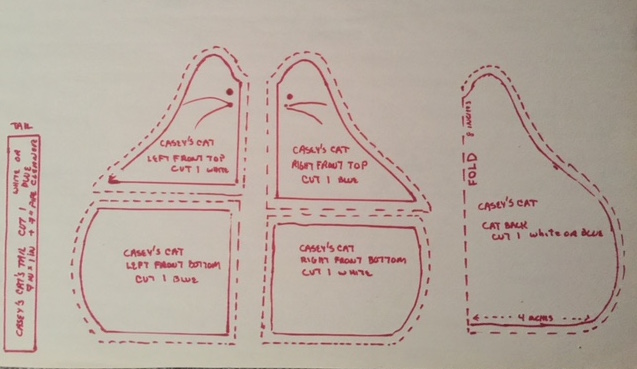 TAIL
CASEY'S CAT'S TAIL CUT 1 WHITE OR BLUE
CASEY'S CAT
LEFT FRONT TOP
CUT 1 WHITE
CASEY'S CAT
RIGHT FRONT TOP
CUT 1 BLUE
CASEY'S CAT
LEFT FRONT BOTTOM
CUT 1 BLUE
CASEY'S CAT
RIGHT FRONT BOTTOM
CUT 1 WHITE
FOLD 8 INCHES
CASEY'S CAT
CAT BACK
CUT 1 WHITE OR BLUE
4 INCHES